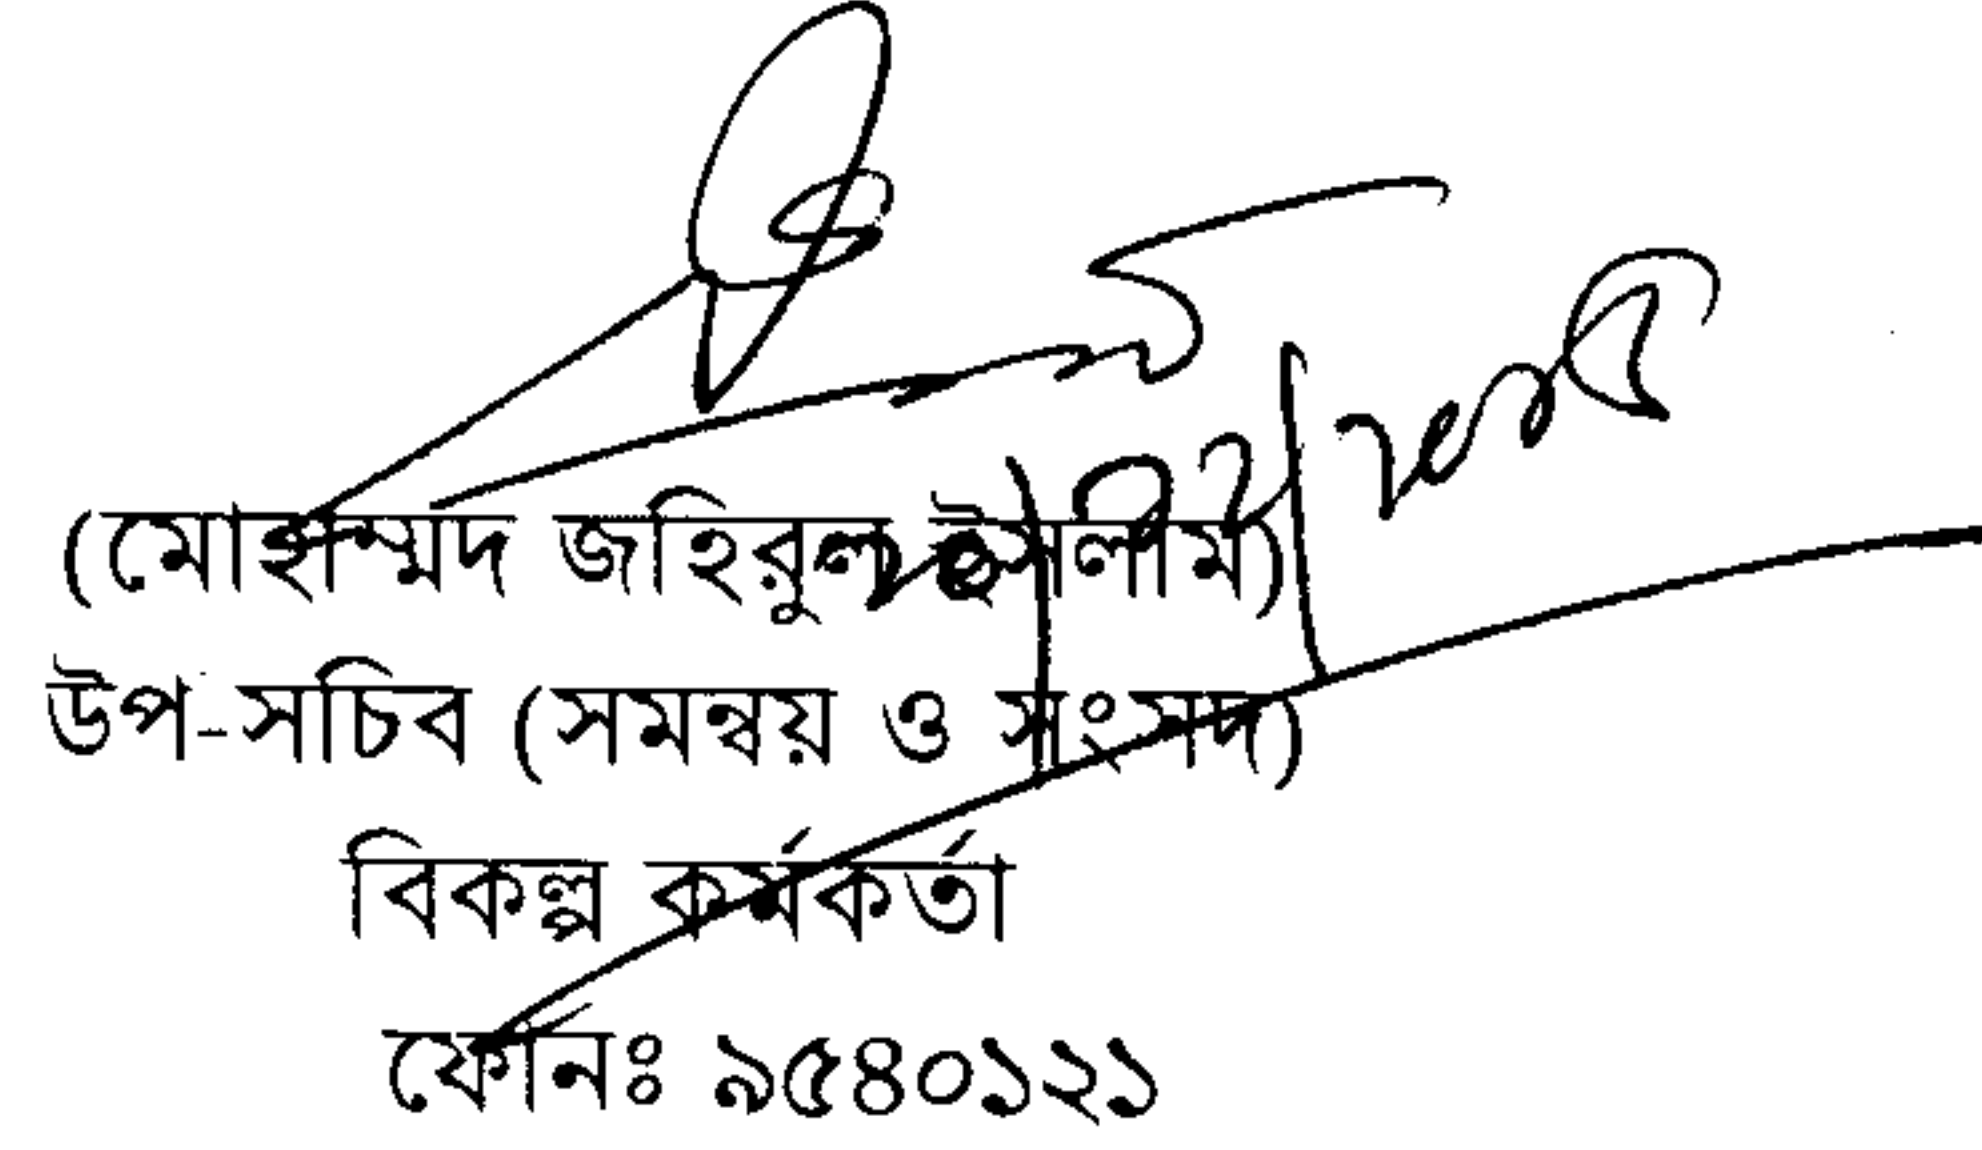 (মোহাম্মদ জহিরুল ইসলাম)
উপ-সচিব (সমন্বয় ও সংসদ)
বিকল্প কর্মকর্তা
ফোনঃ ৯৫৪০১২১